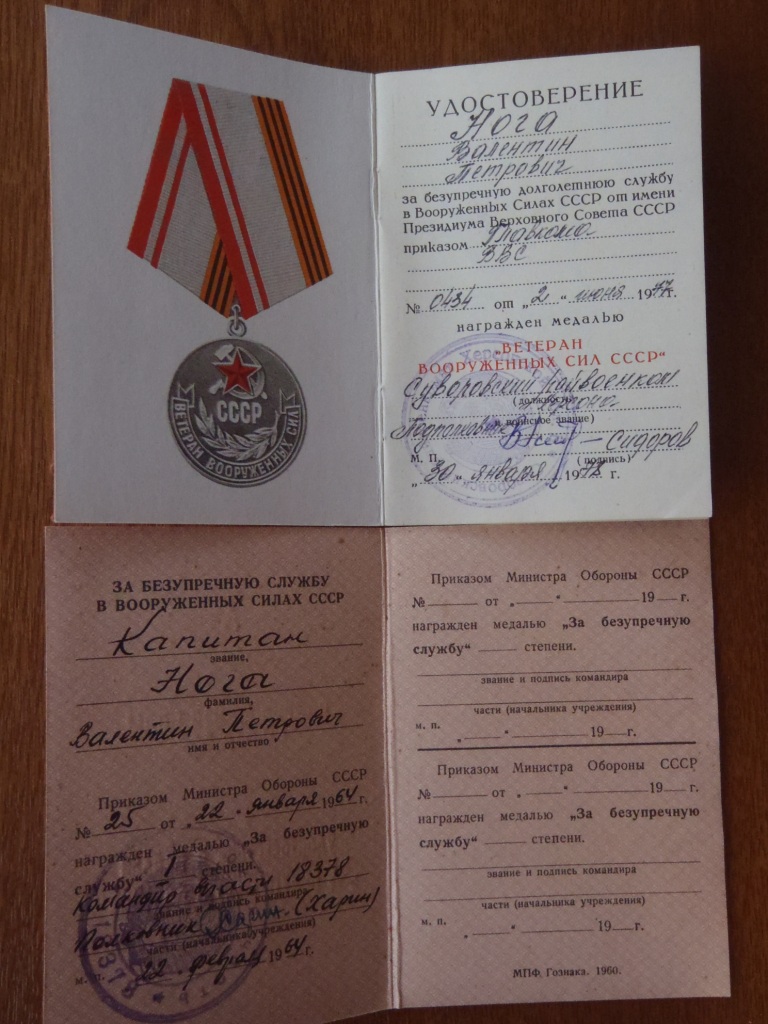 СССР
ВЕТЕРАН ВООРУЖЕННЫХ СИЛ
УДОСТОВЕРЕНИЕ
Нога
Валентин
Петрович
за безупречную долголетнюю службу
в Вооруженных Силах СССР от имени
Президиума Верховного Совета СССР
приказом Главкома
ВВС
№ 0434 от „2“ июня 1977г.
награжден медалью
„ВЕТЕРАН
ВООРУЖЕННЫХ СИЛ СССР“
Суворовский райвоенком
(должность)
Херсона
Подполковник
(воинское звание)
Сидоров
М. П. (подпись)
„30“ января 1978 г.
ЗА БЕЗУПРЕЧНУЮ СЛУЖБУ
В ВООРУЖЕННЫХ СИЛАХ СССР
Капитан
звание,
Нога
фамилия,
Валентин Петрович
имя и отчество
Приказом Министра Обороны СССР
№ 25 от „22“ января 1964г.
награжден медалью „За безупречную
службу“ I степени.
Командир части 18378
звание и подпись командира
Полковник (Харин)
части (начальника учреждения)
м. п. „22“ февраля 1964г.
Приказом Министра Обороны СССР
№ от „ “ 19 г.
награжден медалью „За безупречную
службу“ степени.
звание и подпись командира
части (начальника учреждения)
м. п. „ “ 19 г.
Приказом Министра Обороны СССР
№ от „ “ 19 г.
награжден медалью „За безупречную
службу“ степени.
звание и подпись командира
части (начальника учреждения)
м. п. „ “ 19 г.
МПФ. Гознака. 1960.